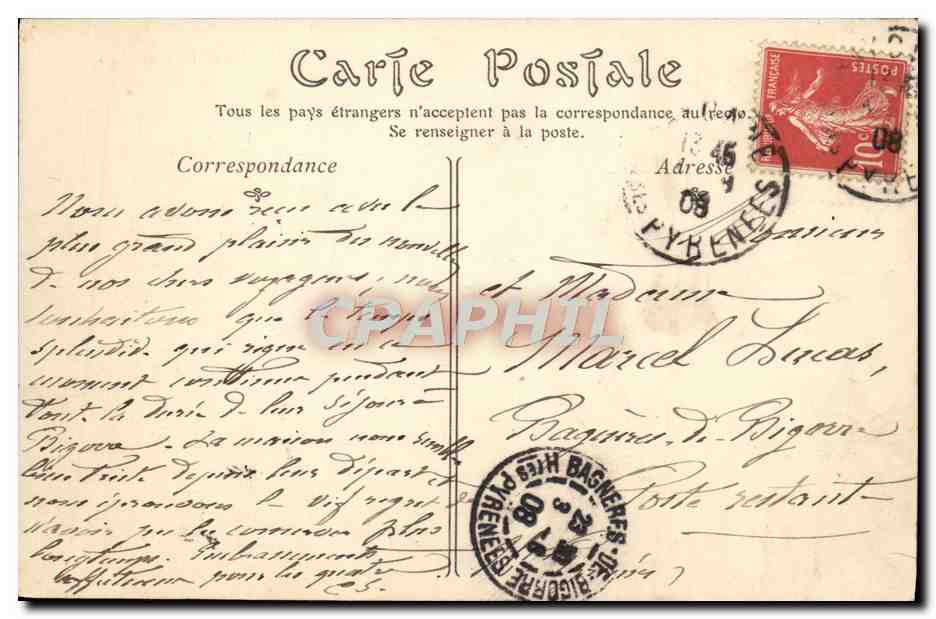 Carte Postale
Tous les pays étrangers n'acceptent pas la correspondance au recto.
Se renseigner à la poste.
Correspondance
Adresse
Nous avons reçu avec le
plus grand plaisir des nouvelles
de nos chers voyageurs, nous
souhaitons que le temps
splendide qui règne en ce
moment continue pendant
tout la durée de leur séjour à
Bigorre. La maison nous semble
bien triste depuis leur départ et
nous éprouvons le vif regret de
n'avoir pu les conserver plus
longtemps. Embrassements
affectueux pour les quatre
Monsieur
et Madame
Marcel Lucas,
Bagnères-de-Bigorre
Poste restante
CPAPHIL
RÉPUBLIQUE FRANÇAISE
POSTES
10c
13 45
9
08
PYRENEES
08
BAGNERES-DE-BIGORRE
Htes PYRENEES
23
9
08